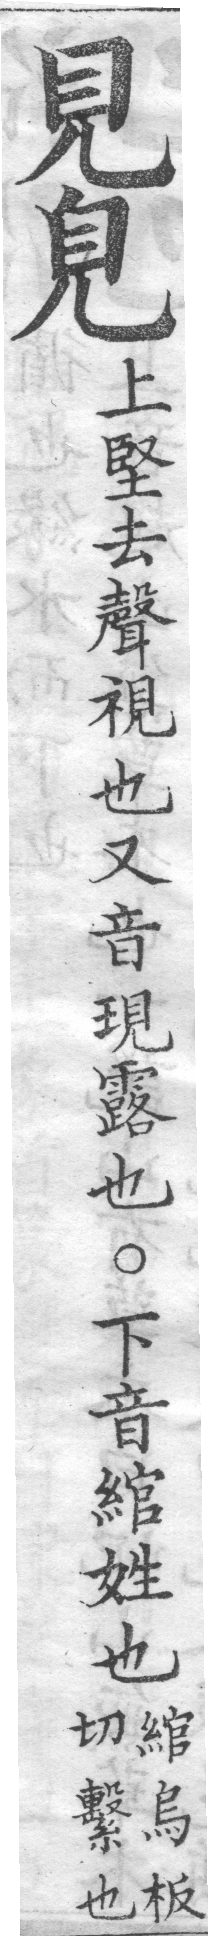 見
上堅去聲視也又音現露也○下音綰姓也
綰烏板
切繫也